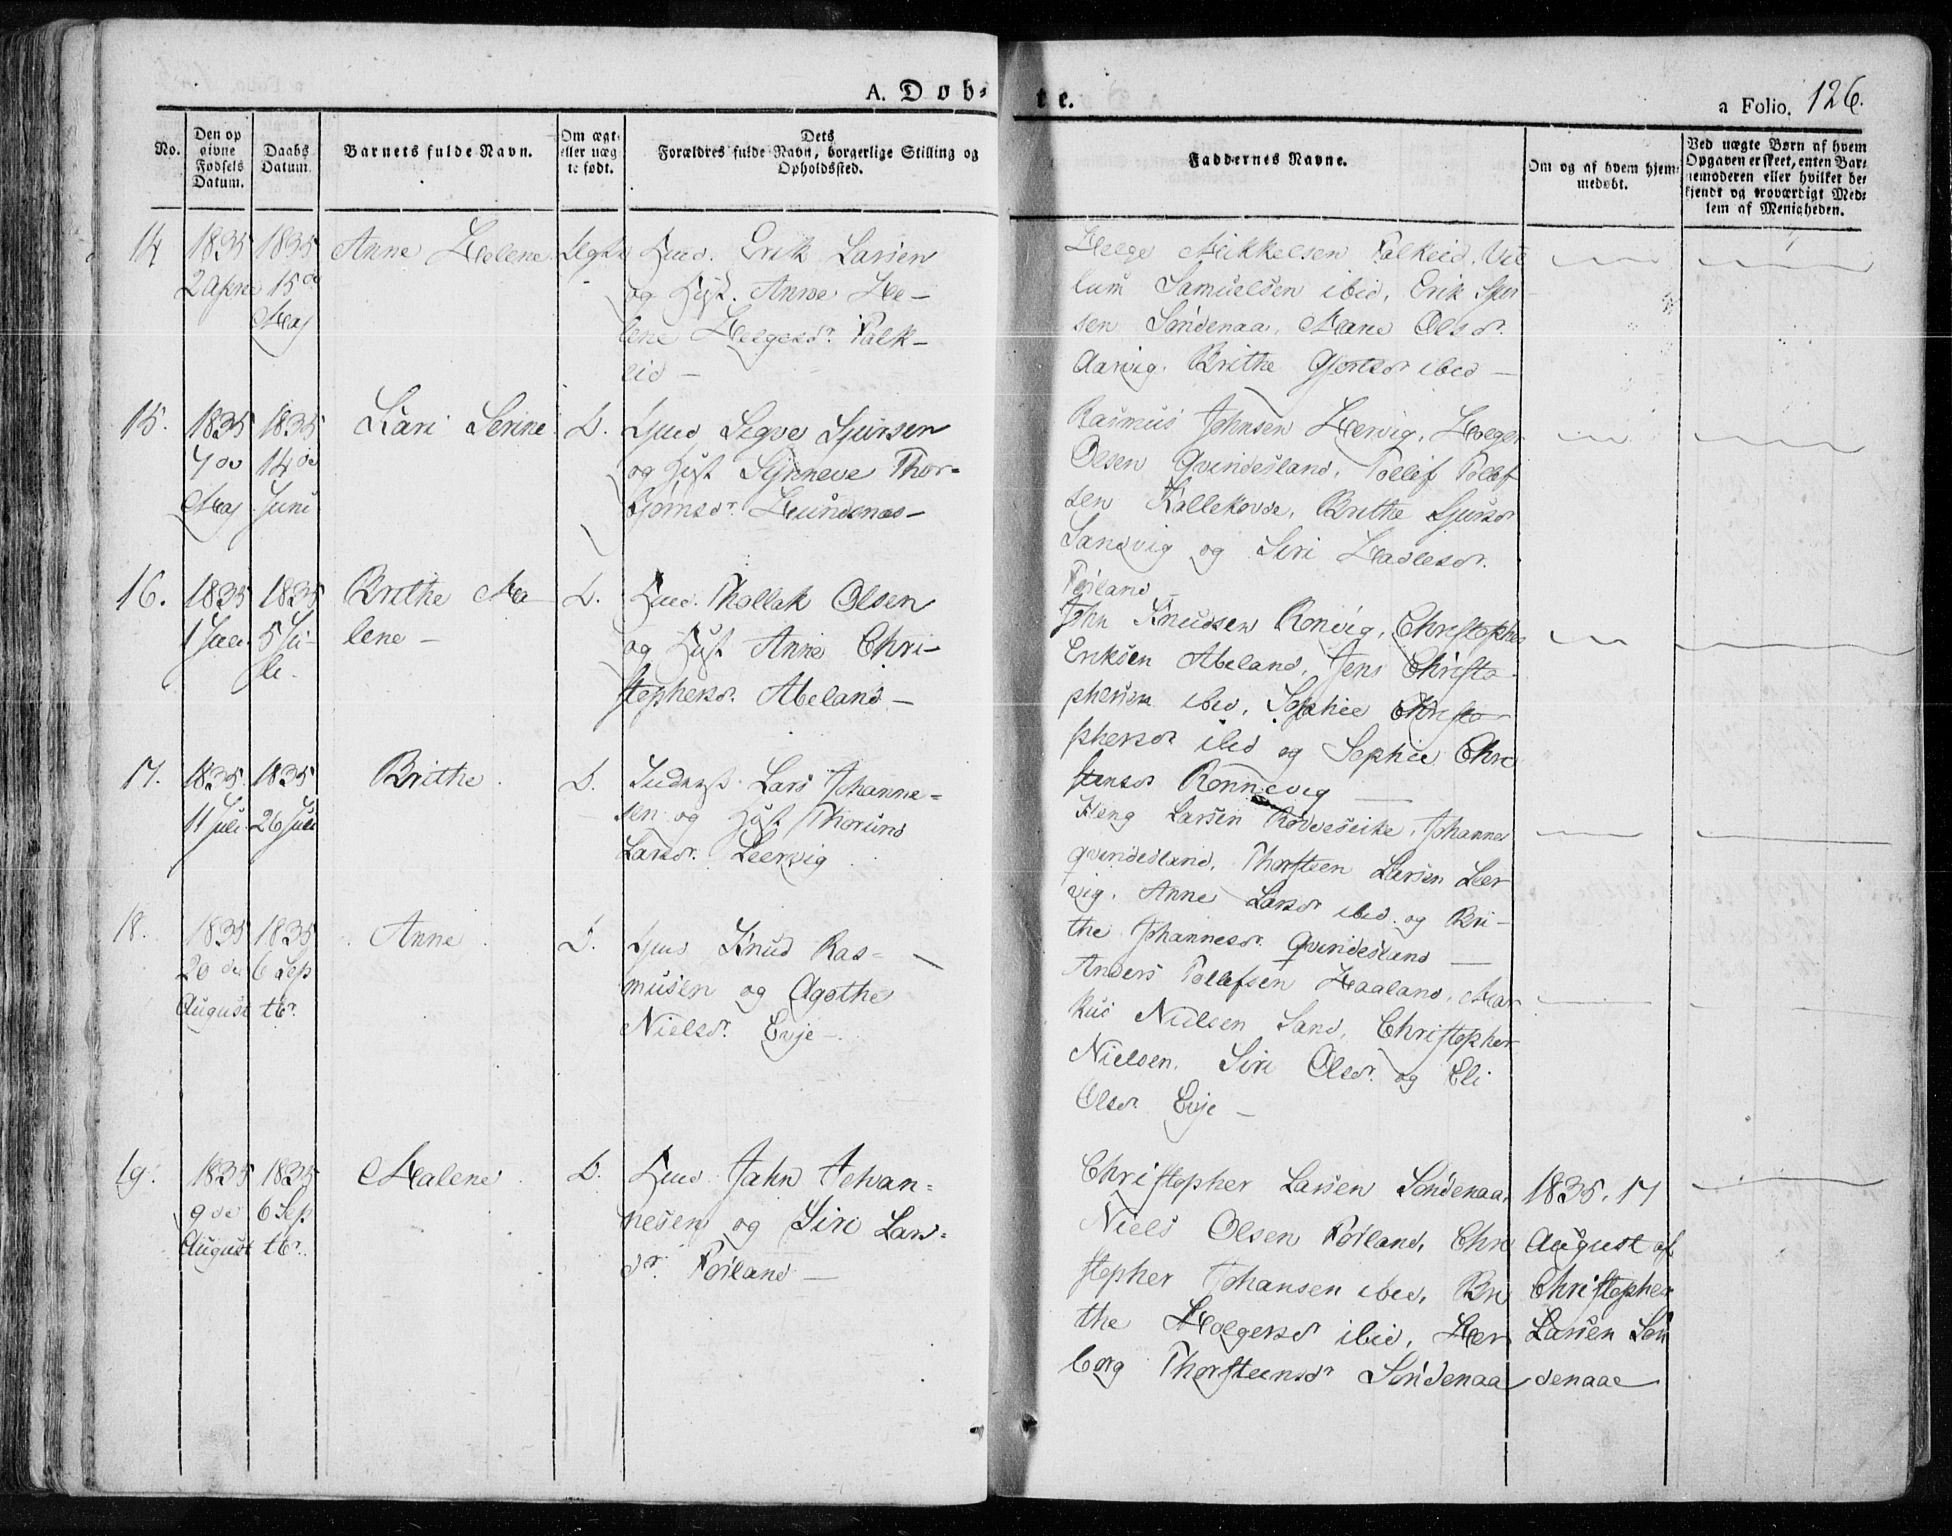 A. Døb-
te.
a Folio. 126.
No.
Den op
givne
Fødsels
Datum.
Daabs
Datum
Barnets fulde Navn.
Om ægt-
eller uæg
te født.
Dets
Forældres fulde Navn, borgerlige Stilling og
Opholdssted.
Faddernes Navne.
Om og af hvem hjem-
medøbt.
Ved uægte Børn af hvem
Opgaven er skeet, enten Bar-
nemoderen eller hvilket be-
kjendt og troværdigt Med-
lem af Menigheden.
14
1835
2 April
1835
15 de
Maj
Anne Helene
Ægte
Erik Larsen
og Hust. Anne He-
lene Helgesdr. Falk-
eid -
Helge Mikkelsen Falkeid, Vil
lum Samuelsen ibid, Erik
sen Søndenaa, Olsdr.
Aarvig. Brithe ibid -
15.
1835
7 de
Maj
1835
14 de
Juni
Kari Serine
D.
Sigve Sjursen
og Hust Synneve Thor-
bjørnsdr. Hundsnes -
Rasmus Johnsen Hervig, Holger
Olsen Qvindesland, Tollef Tollef
sen Kallekodde, Brithe Sjursdr
Sandvig og Siri Hadlesdr.
Føiland
16.
1835
1 Juli
1835
5 Ju-
li.
Brithe Ma
lene -
D.
Thollak Olsen
og Hust Anne Chri-
stophersdr. Abeland -
John Knudsen Rønvig, Christopher
Eriksen Abeland, Jens Christo-
phersen ibid, Sophie Christo-
phersdr ibid og Sophie Chri
stensdr Rønnevig
17.
1835
11 Juli
1835
26 Juli
Brithe
D.
Inderst Lars Johanne-
sen og Hust Thorund
Larsdr. Leervig
Larsen Roveseike, Johannes
Qvindesland, Thorsteen Larsen Leer
vig, Anne Larsdr ibid og Bri-
the Johannesdr Qvindesland
18.
1835
20 de
August
1835
6 Sep
tbr.
Anne
D.
Knud Ras-
musen og Agothe
Nielsdr. Evje -
Anders Tollefsen Haaland, Mar
kus Nielsen Sand, Christopher
Nielsen, Siri Olsdr. og Eli
Olsdr Evje -
19.
1835
9 de
August
1835
6 Sep
tbr.
Malene
D.
John Johan-
nesen og Siri Lars-
dr. Føiland -
Christopher Larsen Søndenaa,
Niels Olsen Føiland, Chri
stopher Johansen ibid, Bri
the Holgersdr ibid, Her
borg Thorsteensdr Søndenaa
1835. 17
August af
Christopher
Larsen Søn
denaae